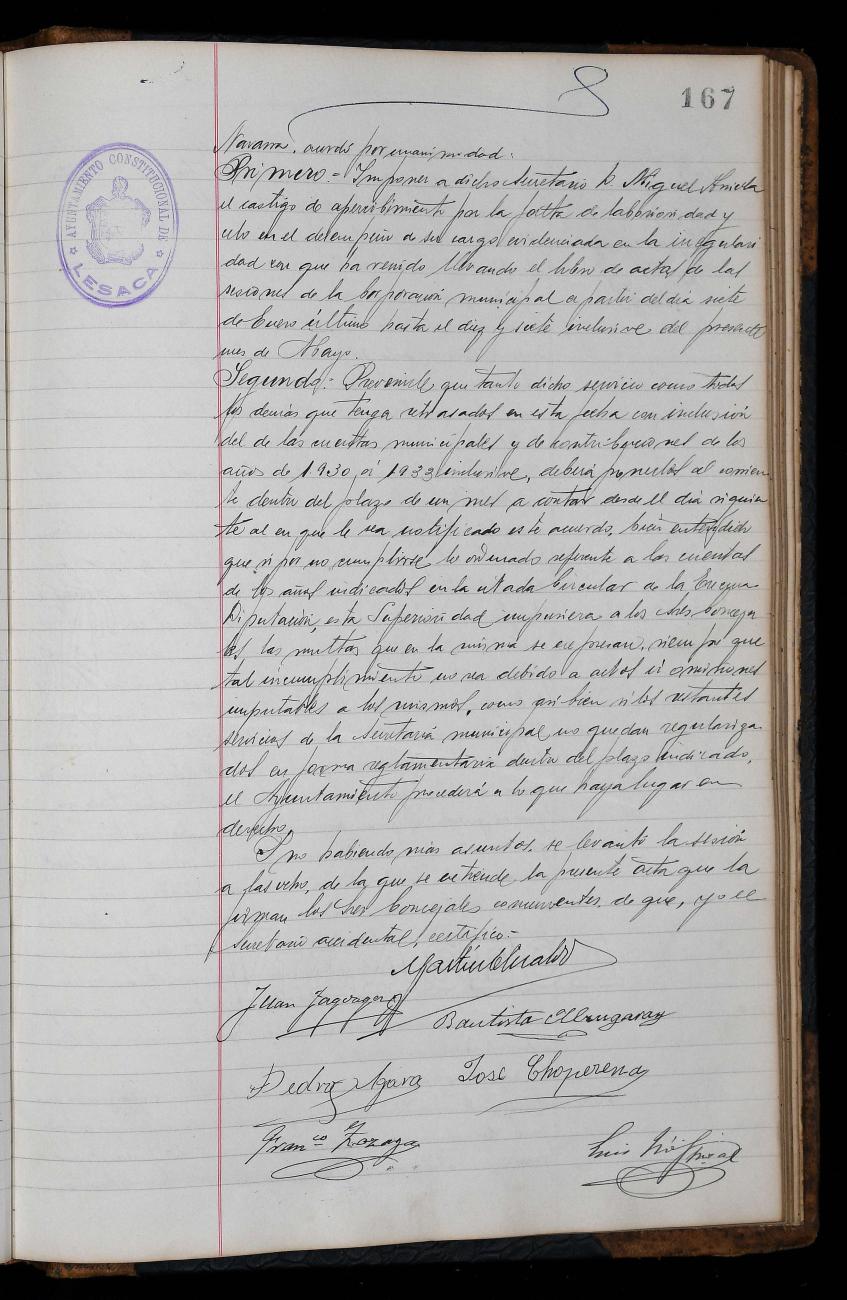 167
AYUNTAMIENTO CONSTITUCIONAL DE
LESACA
Navarra, acordó por unanimidad:
Primero.- Imponer a dicho Secretario D. Miguel
el castigo de apercibimiento por la falta de laboriosidad y
celo en el desempeño de su cargo, evidenciada en la irregulari
dad con que ha venido llevando el libro de actas de las
sesiones de la Corporación municipal a partir del día siete
de Enero último hasta el diez y siete inclusive del presente
mes de Mayo.
Segundo.- Prevenirle que tanto dicho servicio como todos
los demás que tenga retrasados en esta fecha con inclusión
del de las cuentas municipales y de contribuciones de los
años de 1.930 á 1933 inclusive, deberá ponerlos al corrien-
te dentro del plazo de un mes a contar desde el día siguien
te al en que le sea notificado este acuerdo, bien entendido
que si por no cumplirse lo ordenado referente a las cuentas
de los años indicados en la citada Circular de la Excma.
Diputación, esta Superioridad impusiera a los Sres Conceja
les las multas que en la misma se expresan, siempre que
tal incumplimiento no sea debido a actos ú omisiones
imputables a los mismos, como así bien si los restantes
servicios de la Secretaría municipal no quedan regulariza
dos en forma reglamentaria dentro del plazo indicado,
el Ayuntamiento procederá a lo que haya lugar en
derecho.
Y no habiendo más asuntos, se levantó la sesión
a las ocho, de la que se extiende la presente acta que la
firman los Sres Concejales concurrentes, de que, yo el
Secretario accidental, certifico:-
Martin
Juan
Bautista
Pedro José Choperena
Franco Zozaya
Luis